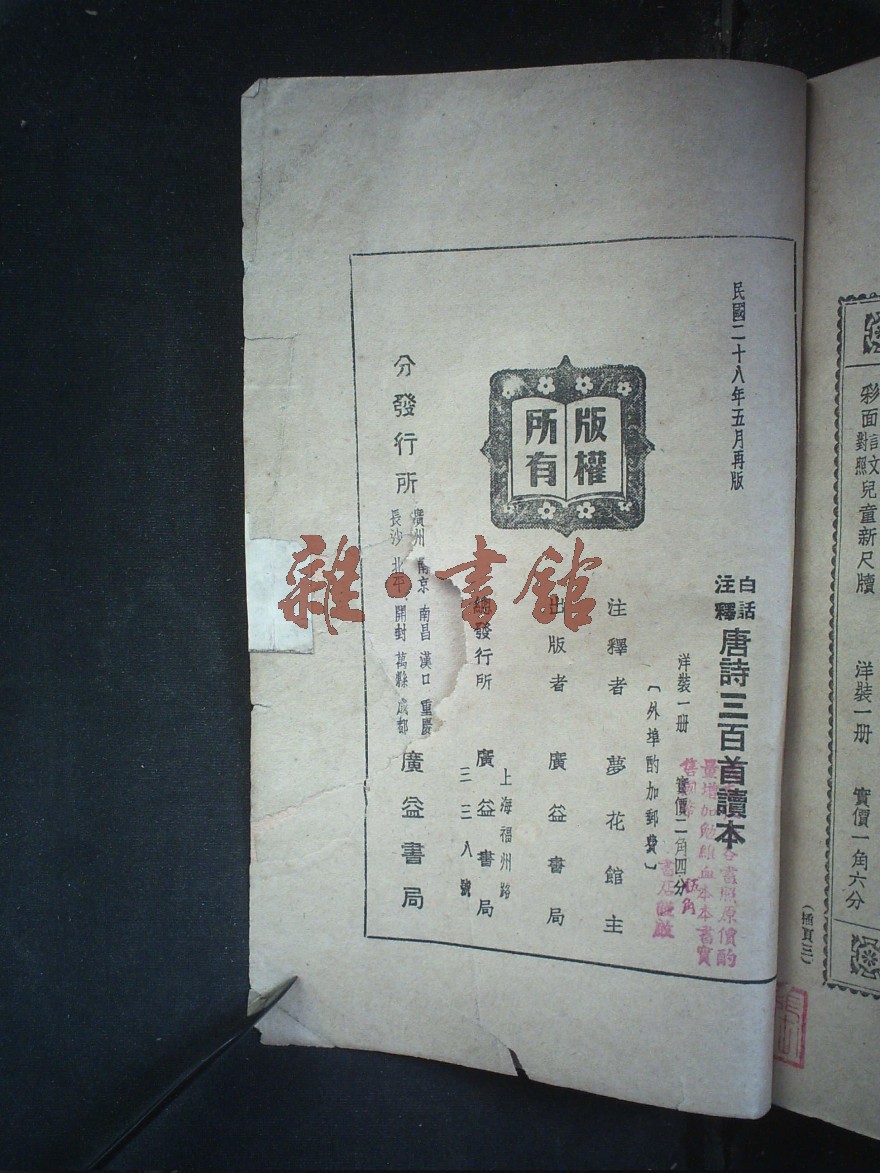 民國二十八年五月再版
白話
注釋
唐詩三百首讀本
洋裝一册 實價二角四分
〔外埠酌加郵費〕
注釋者 夢花館主
出版者 廣益書局
版權
所有
總發行所 廣益書局
上海福州路
三三八號
分發行所 廣益書局
廣州 南京 南昌 漢口 重慶
長沙 北平 開封 萬縣 成都
書照原價酌
量增加勉維血本本書實
售國幣
伍角
書局謹啟
彩面
言文
對照
兒童新尺牘 洋裝一册 實價一角六分
(插頁三)
雜·書館